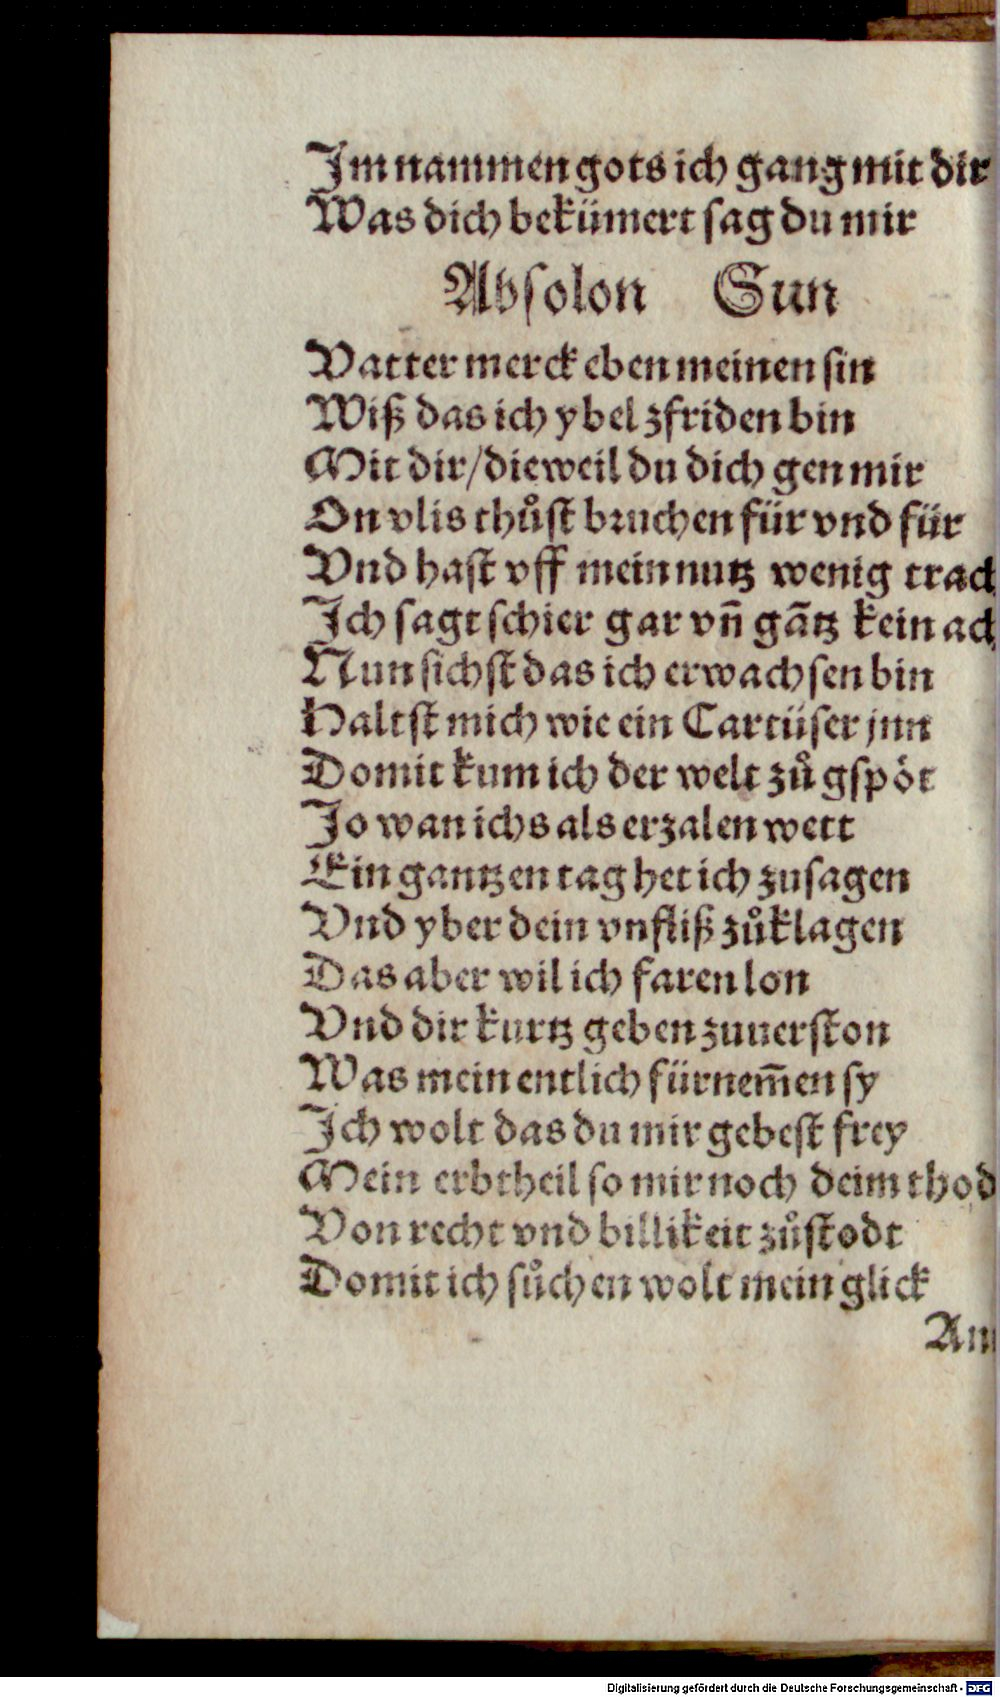 Im nammen gots ich gang mit dir
Was dich bekümert sag du mir
Absolon Sun
Vatter merck eben meinen sin
Wiß das ich ybel zfriden bin
Mit dir/dieweil du dich gen mir
On vlis thůst bruchen für vnd für
Vnd hast vff mein nutz wenig trach
Ich sagt schier gar vñ gãtz kein ach
Nun sichst das ich erwachsen bin
Haltst mich wie ein Cartüser jnn
Domit kum ich der welt zů gspöt
Jo wan ichs als erzalen wett
Ein gantzen tag het ich zusagen
Vnd yber dein vnfliß zůklagen
Das aber wil ich faren lon
Vnd dir kurtz geben zuuerston
Was mein entlich fürnem̃en sy
Ich wolt das du mir gebest frey
Mein erbtheil so mir noch deim thod
Von recht vnd billikeit zůstodt
Domit ich sůchen wolt mein glick
An
Digitalisierung gefördert durch die Deutsche Forschungsgemeinschaft - DFG